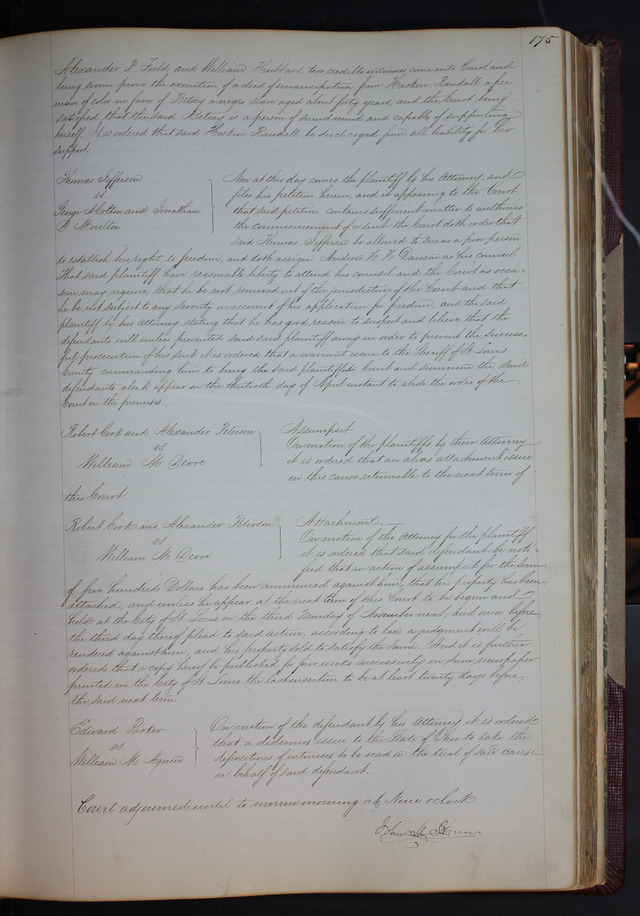 175
Alexander P Field and William Hubbard two credible witnesses come into Court and
being sworn prove the execution of a deed of emancipation from Hosken Randall a free
man of color in favor of Betsey a negro slave aged about forty years, and the Court being
satisfied that the said Betsey is a person of sound mind and capable of supporting
herself. It is ordered that said Hosken Randall be discharged from all liability for her
support.
Thomas Jefferson
vs
George A Colton and Jonathan
P. Moulton
Now at this day comes the plaintiff by his Attorney, and
files his petition herein, and it appearing to the Court
that said petition contains sufficient matter to authorise
the commencement of a suit the Court doth order that
said Thomas Jefferson be allowed to sue as a poor person
to establish his right to freedom, and doth assign Andrew H. H. Dawson as his counsel
That said plaintiff have reasonable liberty to attend his counsel and the Court as occa-
sion may require, that he be not removed out of the jurisdiction of the Court and that
he be not subject to any severity on account of his application for freedom, and the said
plaintiff by his Attorney stating that he has good reason to suspect and believe that the
defendants will unless prevented send said plaintiff away in order to prevent the success-
ful prosecution of his suit it is ordered that a warrant issue to the Sheriff of St Louis
County commanding him to bring the said plaintiff into Court and summon the said
defendants also to appear on the thirtieth day of April instant to abide the order of the
Court in the premises
Robert Cook and Alexander Peterson
vs
William M
Assumpsit
On motion of the plaintiffs by their Attorney
it is ordered that an alias attachment issue
in this cause returnable to the next term of
this Court
Robert Cook and Alexander Peterson
vs
William M
Attachment.
On motion of the Attorney for the plaintiff
it is ordered that said defendant be noti-
fied that an action of assumpsit for the sum
of five hundred Dollars has been commenced against him, that his property has been
attached, and unless he appear at the next term of this Court to be begun and
held at the City of St Louis on the third Monday of November next, and on or before
the third day thereof plead to said action, according to law a judgment will be
rendered against him, and his property sold to satisfy the same. And it is further
ordered that a copy hereof be published for four weeks successively in some newspaper
printed in the City of St Louis the last insertion to be at least twenty days before
the said next term
Edward Parker
vs
William M
On motion of the defendant by his Attorney it is ordered
that a dedimus issue to the State of Ohio to take the
depositions of witnesses to be read on the trial of said cause
on behalf of said defendant.
Court adjourned until to morrow morning at Nine oclock
John M Krum